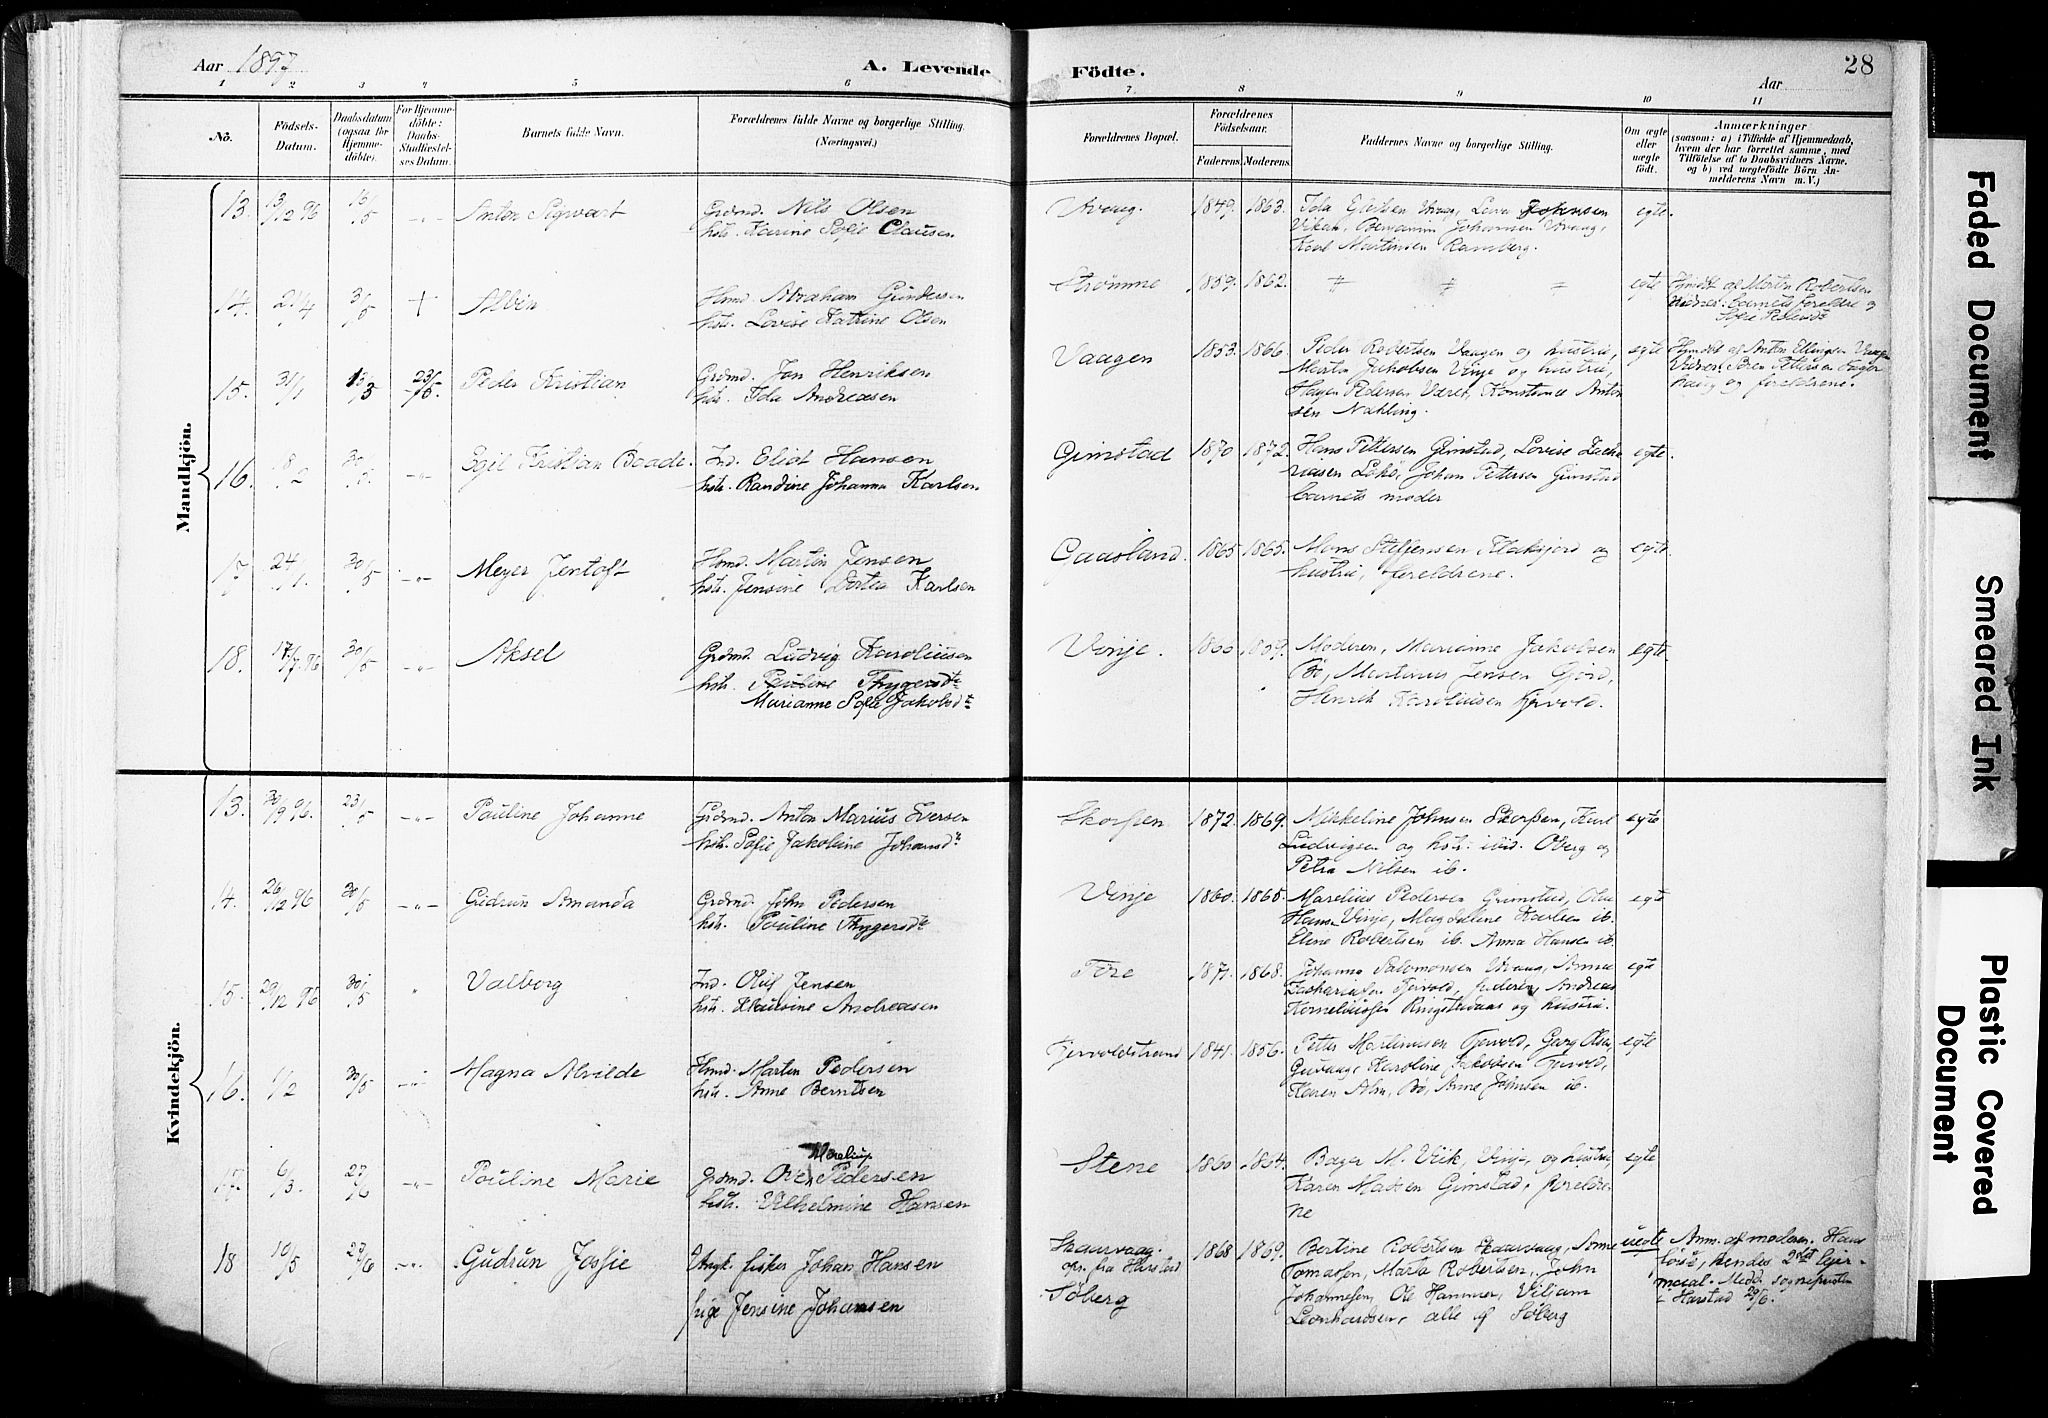 Aar 1897
A. Levende Födte.
28
Aar
1 2 3 4 5 6 7 8 9 10 11
No.
Födsels-
Datum.
Daabsdatum
(ogsaa for
Hjemme-
döbte).
For Hjemme-
döbte:
Daabs-
Stadfæstel-
ses Datum.
Barnets fulde Navn.
Forældrenes fulde Navne og borgerlige Stilling.
(Næringsvei.)
Forældrenes Bopæl.
Forældrenes
Födselsaar.
Faderens Moderens.
Faddernes Navne og borgerlige Stilling.
Om ægte
eller
uægte
födt.
Anmærkninger
(saasom: a) i Tilfælde af Hjemmedaab,
hvem der har forrettet samme, med
Tilföielse af to Daabsvidners Navne,
og b) ved uegtefödte Börn An-
melderens Navn m. V.)
Mandkjön.
13. 13/12 96 16/5 -"- Anton Sigvart
Grdmd. Nils Olsen
hstr. Karine Sofie Clausen
1849. 1863.
Karl Martinsen Ramberg.
egte.
14. 21/4 3/5 + Albin
Hsmd. Abraham Gundersen
hstr. Lovise Katrine Olsen
Strømme 1859. 1862. egte
Hjmdt af Martin Robertsen
15. 31/1 23/5. Peder Kristian
Grdmd. Jon Henriksen
hstr. Ida Andreasen
Vaagen 1853. 1866.
Peder Robertsen Vaagen og hustru,
Martin Jakobsen Vinje og hustru,
Hagen Pedersen Været, Konstanse Anton
sen Nakling.
egte
Hjmdbt af Anton Ellingsen
Vidner: Søren Pettersen
og foreldrene.
16. 8/2 30/5. -"- Egil Kristian Baade.
Ind. Eliot Hansen
hstr. Randine Johanna Karlsen
Gimstad 1870 1872.
Hans Pettersen Gimstad, Lovise Zacha
riasen Johan Pettersen Gimstad
barnets moder
egte.
17 24/1. 30/5 -"- Meyer Jentoft
Hsmd. Martin Jensen
hstr. Jensine Dortea Karlsen
Gaasland. 1865 1865.
Mons Steffensen og
hustru, foreldrene.
egte.
18. 17/7.96 30/5 -"- Aksel
Grdmd. Ludvig Karoliusen
hstr. Pauline Thygersdtr
Marianne Sofie Jakobsdtr
Vinje. 1866 1859.
Moderen, Marianne Jakobsen
Bø, Martinus Jensen
Henrik Karoliussen Fjervold.
egte.
Kvindekjön.
13. 30/9 96. 23/5 -"- Pauline Johanne
Grdmd. Anton Marius Eversen
hstr. Sofie Jakobine Johansdtr
Skorpen 1872. 1869.
Nikkeline Johnsen Skorpen, Karl
Ludvigsen og hstr. ibid. Oberg og
Petra Nilsen ib.
egte
14. 26/12 96 30/5 -"- Gudrun Amanda
Grdmd. John Pedersen
hstr. Pauline Thygersdtr
Vinje 1860. 1865.
Marelius Pedersen Grimstad, Ole
Hansen Vinje, Magdaline Karlsen ib.
Eline Robertsen ib. Anna Hansen ib.
egte
15. 29/12 96 30/5 " Valborg
Ind. Oluf Jensen
hstr. Andreasen
Føre 1871. 1868.
Johanna Salomonsen
Fjervold, faderen, Andreas
Korneliussen Ringstadaas og hustru.
egte
16. 1/2 30/5 -"- Magna Alvilde
Hsmd. Martin Pedersen
hstr. Anne Berntsen
Fjervoldstrand 1841. 1856.
Petter Martinussen Fjervold, Georg Olsen
Karoline Jakobsen Fjervold,
Karen Bø, Anne Johnsen ib.
egte
17. 6/3. 27/6 -"- Pauline Marie
Marelius
Grdmd. Ove Pedersen
hstr. Vilhelmine Hansen
Stene 1860 1864.
Bager M. Viik, Vinje, og hustru,
Karen Madsen Gimstad, foreldre
ne
egte
18 10/5 27/6 -"- Gudrun Jossie
Ungk. fisker Johan Hansen
pige Jensine Johansen
Skaarvaag.
opr. fra Harstad
Søberg
1868 1869.
Bertine Robertsen Skaarvaag, Anne
Tomassen, Marta Robertsen, John
Johannesen, Ole Hammer, Viliam
Leonhardsen, alle af Søberg
uegte
Anm. af moderen. Hans
første, hendes 2det leier-
maal. Medd. sognepresten
i Harstad 29/6.
Faded Document
Smeared Ink
Plastic Covered
Document